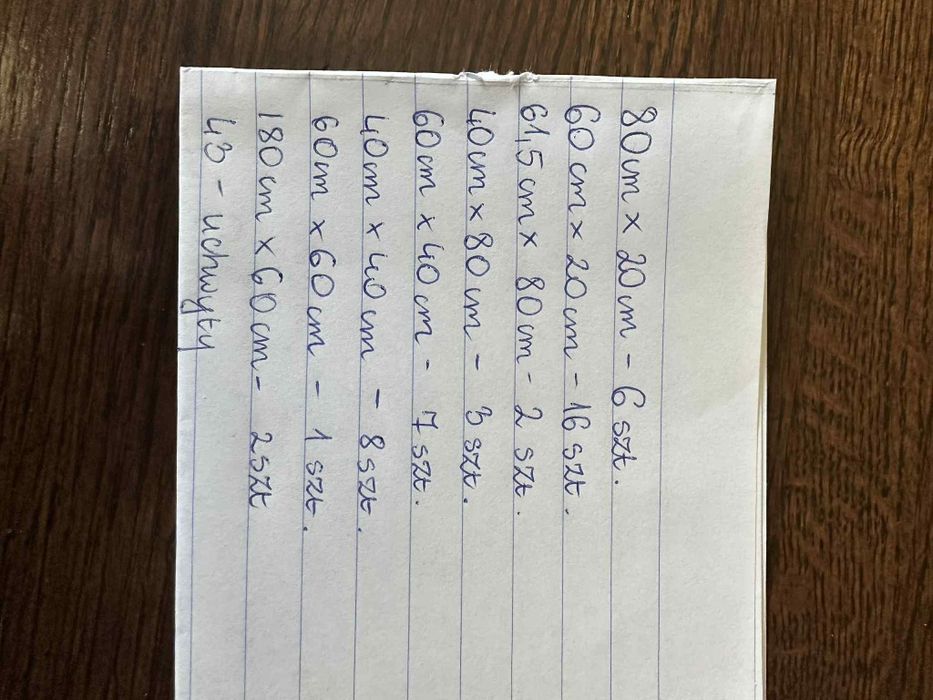 80cm x 20cm - 6 szt.
60 cm x 20cm - 16 szt.
61,5 cm x 80cm - 2 szt.
40cm x 80cm - 3 szt.
60cm x 40cm - 7 szt.
40cm x 40cm - 8 szt.
60cm x 60cm - 1 szt.
180cm x 60cm - 2 szt
43 - uchwyty